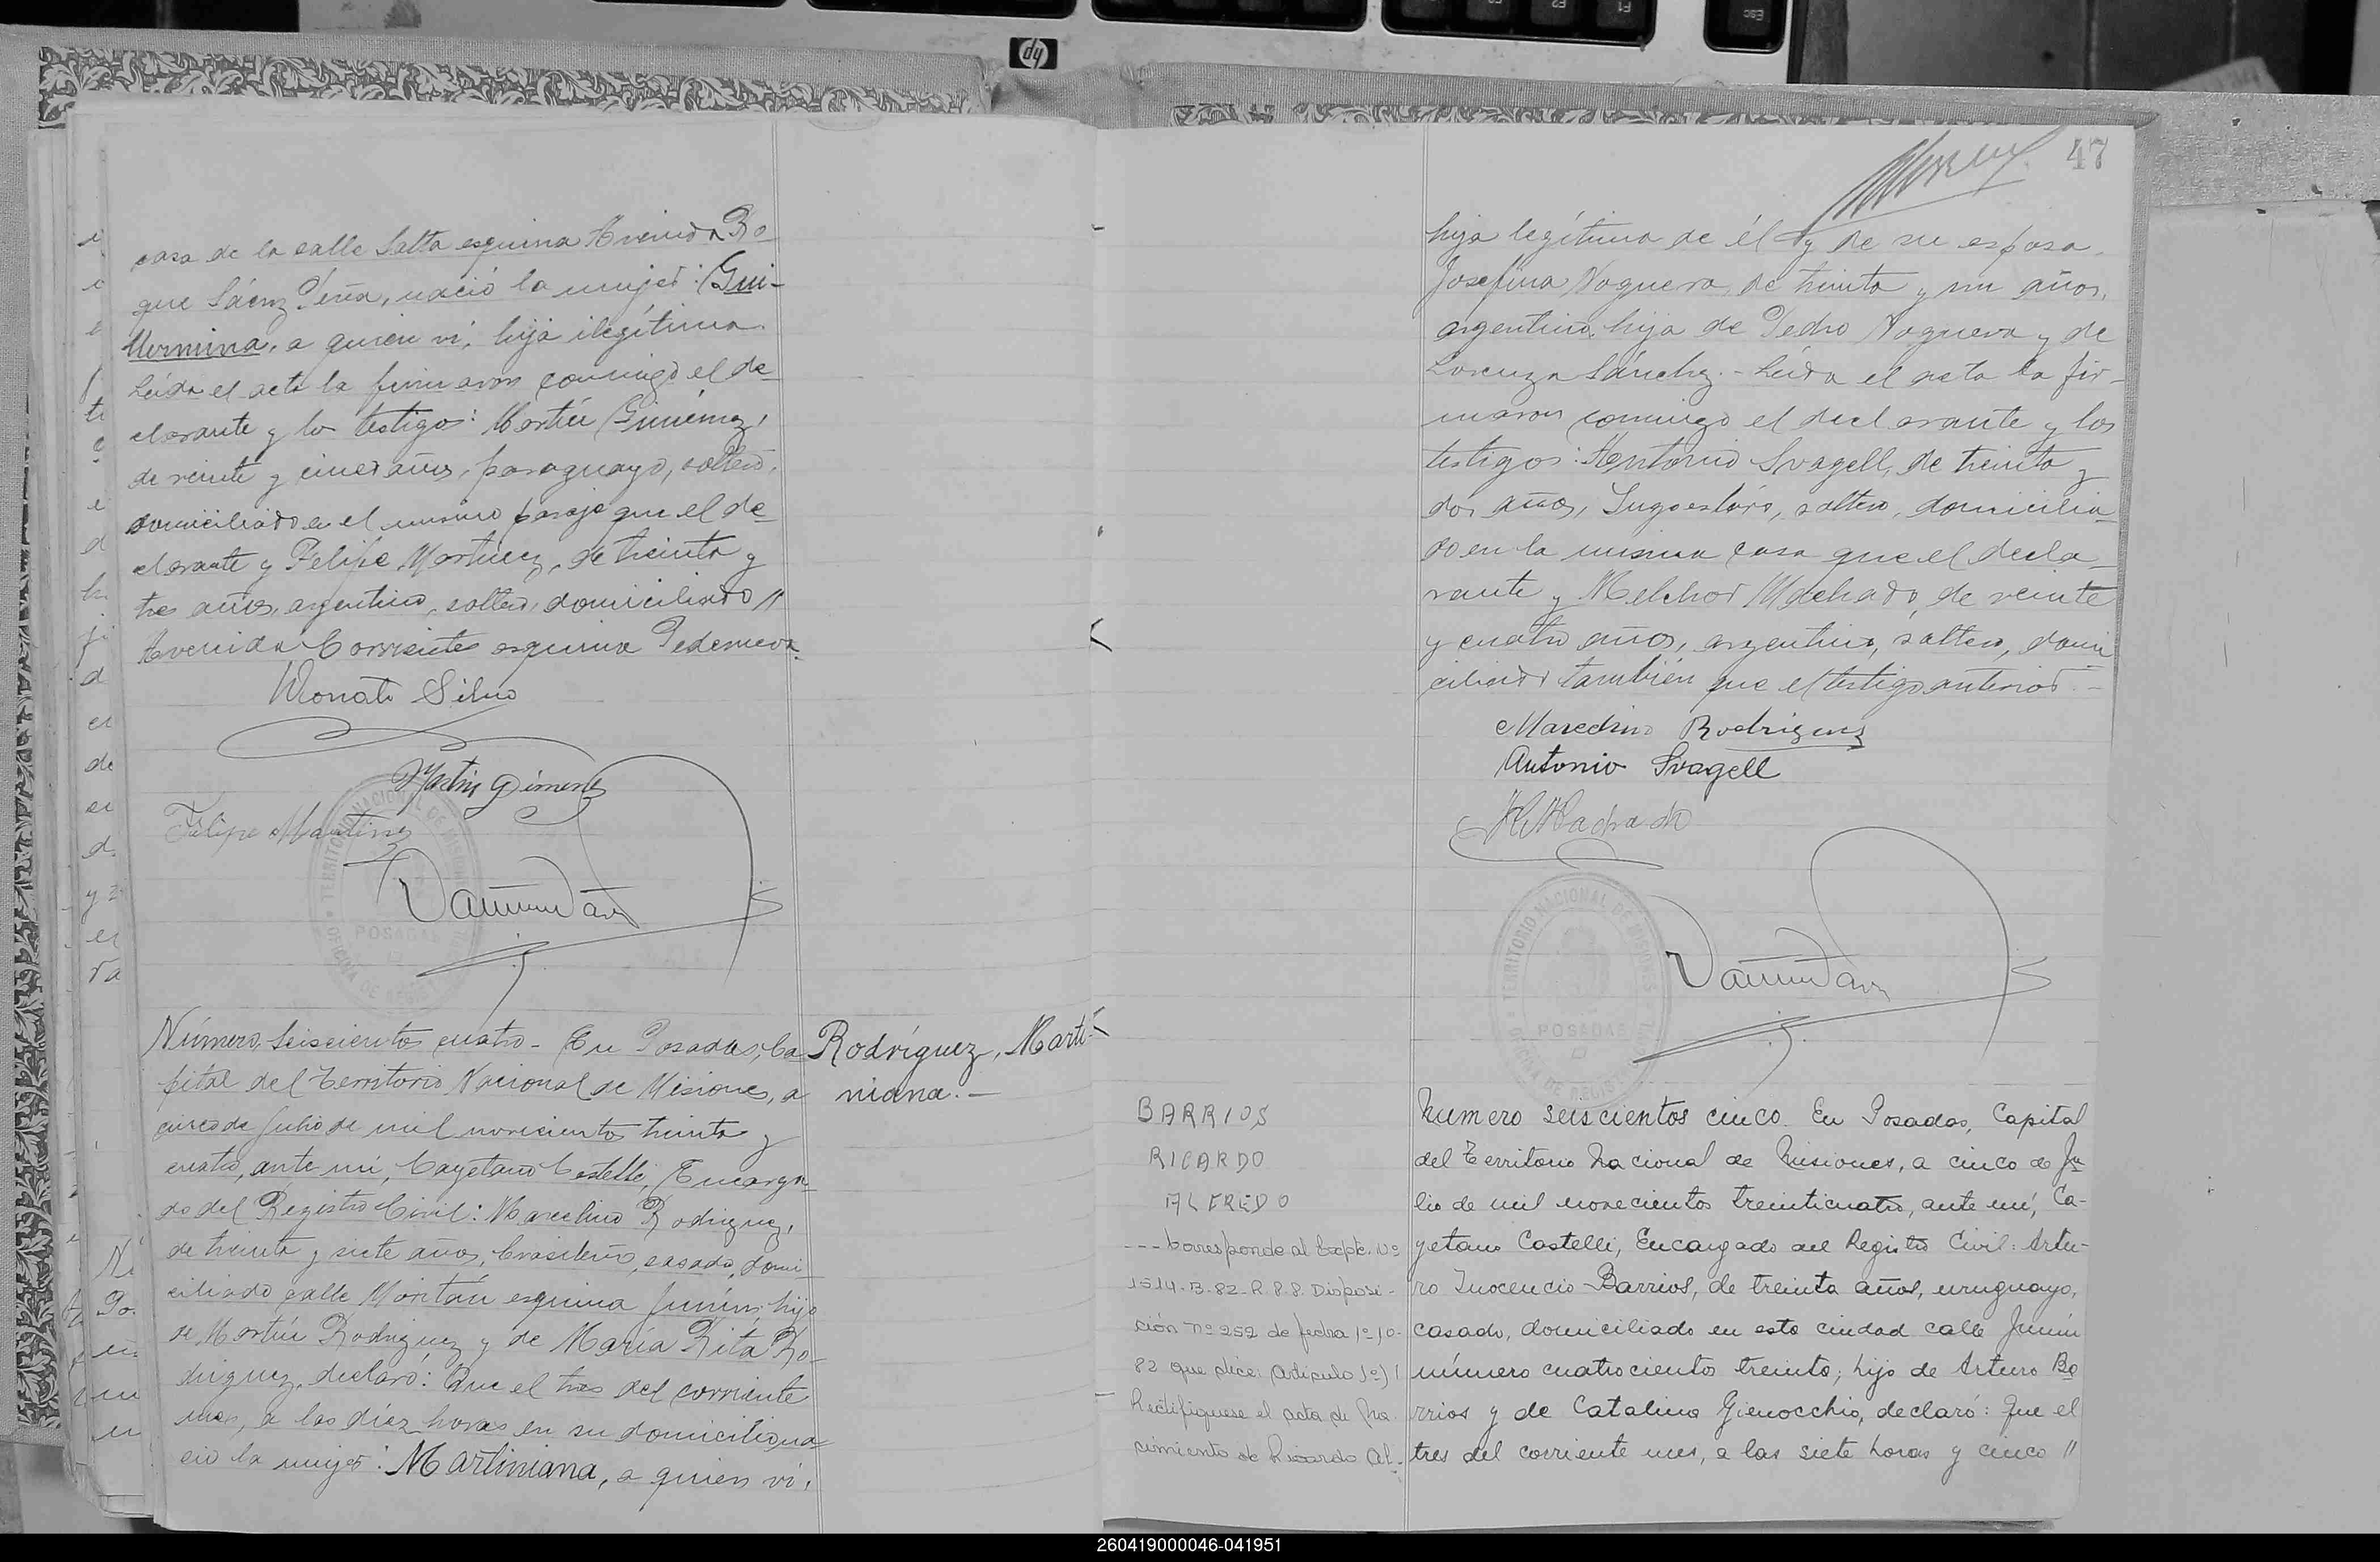 casa de la calle Salta esquina Avenida Ro-
que Sáenz Peña, nació la mujer: Gui-
llermina, a quien vi, hija ilegítima.
Leída el acta la firmaron conmigo el de-
clarante y los testigos: Martín Giménez,
de veinte y cinco años, paraguayo, soltero,
domiciliado en el mismo paraje que el de-
clarante y Felipe Martínez, de treinta y
tres años, argentino, soltero, domiciliado //
Avenida Corrientes esquina Pedernera.
Donato Silva
Martin Gimenez
Felipe Martinez
TERRITORIO NACIONAL DE MISIONES
POSADAS
Número, Seiscientos cuatro - En Posadas, Ca
pital del Territorio Nacional de Misiones, a
cinco de Julio de mil novecientos treinta y
cuatro, ante mí, Cayetano Castelli, Encarga-
do del Registro Civil: Marcelino Rodriguez,
de treinta y siete años, brasileño, casado, domi-
ciliado calle Moritán esquina Junín; hijo
de Martín Rodriguez y de María Rita Ro-
driguez, declaró: Que el tres del corriente
mes, a las diez horas en su domicilio na
ció la mujer: Martiniana, a quien vi,
Rodríguez, Marti-
niana. -
47
hija legítima de él y de su esposa
Josefina Noguera, de treinta y un años,
argentina, hija de Pedro Noguera y de
Lorenza Sánchez. - Leída el acta la fir-
maron conmigo el declarante y los
testigos: Antonio Svagell, de treinta y
dos años, Yugoeslavo, soltero, domicilia-
do en la misma casa que el decla-
rante y Melchor Machado, de veinte
y cuatro años, argentino, soltero, domi
ciliado también que el testigo anterior. -
Marcelino Rodriguez
Antonio Svagell
M Machado
TERRITORIO NACIONAL DE MISIONES
POSADAS
BARRIOS
RICARDO
ALFREDO
--- Corresponde al Expte. Nº
1514-B-82-R.P.P. Disposi-
ción nº 252 de fecha 1º-10-
82 que dice: Artículo 1º)
Rectifíquese el acta de Na-
cimiento de Ricardo Al-
Número seiscientos cinco. En Posadas, Capital
del Territorio Nacional de Misiones, a cinco de Ju
lio de mil novecientos treinticuatro, ante mí, Ca-
yetano Castelli, Encargado del Registro Civil: Artu-
ro Inocencio Barrios, de treinta años, uruguayo,
casado, domiciliado en esta ciudad calle Junín
número cuatrocientos treinta; hijo de Arturo Ba
rrios y de Catalina Gienocchio, declaró: Que el
tres del corriente mes, a las siete horas y cinco //
260419000046-041951